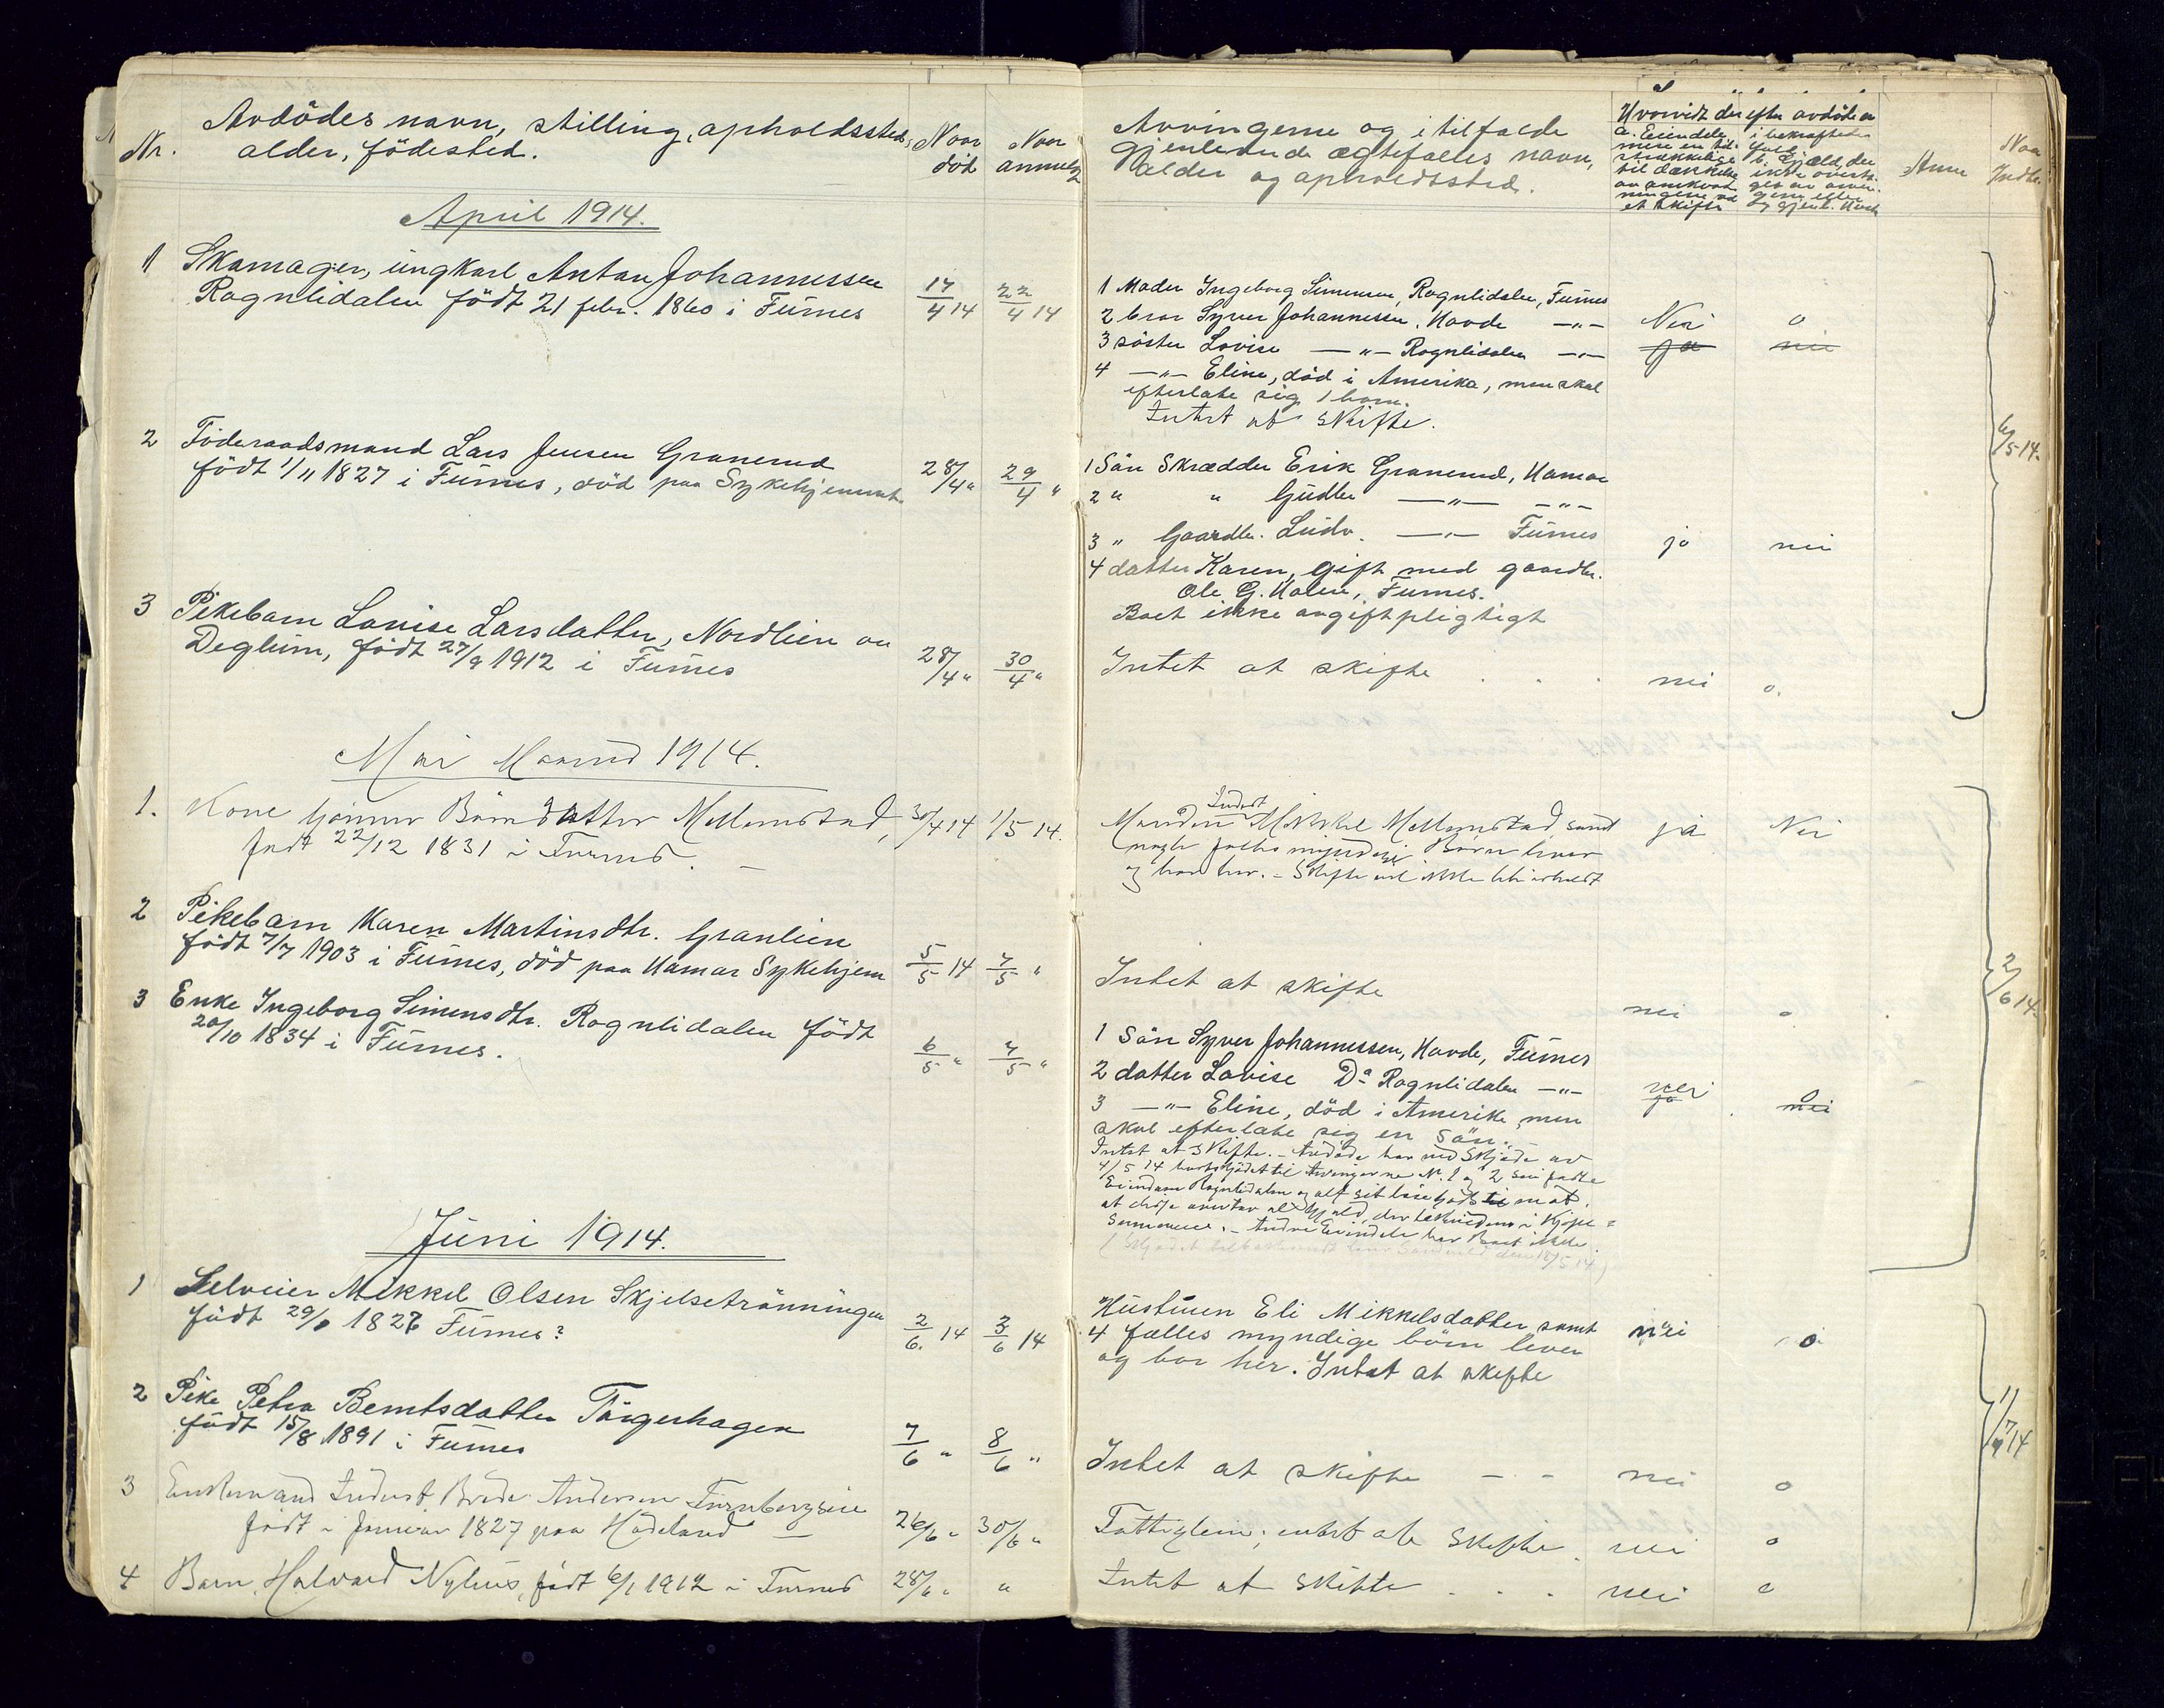 Nr.
Avdödes navn, stilling, opholdssted,
alder, födested.
Naar
död
Naar
anmeldt
Arvingerne og i tilfælde
gjenlevende ægtefælles navn,
alder og opholdssted.
Hvorvidt der efter avdöde er
a. Eiendele
mere en til-
strækkelige
til dækkelse
av omkost-
ningene ved
et skifte
i bekræftende
fald
b. Gjæld, der
ikke overta-
ges av arvin-
gene eller
Anm
Naar
Indb.
April 1914.
1 Skomager, ungkarl Anton Johannessen
Rognlidalen födt 21 febr. 1860 i Furnes
17/4 14 22/4 14
1 Moder Ingeborg Simensen, Rognlidalen, Furnes
2 bror Syver Johannessen, Hovde —"—
3 söster Lovise —"— Rognlidalen —"—
4 —"— Eline, död i Amerika, men skal
efterlate sig 1 barn.
Intet at skifte.
Nei o
ja nei
6/5 14.
2 Föderaadsmand Lars Jensen Granerud
födt 1/11 1827 i Furnes, död paa Sykehjemmet
28/4 " 29/4 "
1 Sön Skrædder Erik Granerud, Hamar
2 " " Gudbr. —"— —"—
3 " Gaardbr. Ludv. —"— Furnes
4 datter Karen, gift med gaardbr.
Ole G. Holen, Furnes.
Boet ikke avgiftpligtigt
ja nei
3 Pikebarn Lovise Larsdatter, Nordlien av
Deglum, födt 27/9 1912 i Furnes
28/4 " 30/4 "
Intet at skifte nei o.
Mai Maaned 1914.
1. Kone Gunnor Börresdatter Mellemstad,
födt 22/12 1831 i Furnes. —
30/4 14 1/5 14.
Manden Inderst Mikkel Mellemstad, samt
nogle fælles myndige Börn lever
og bor her. – Skifte vil ikke bli avholdt
ja Nei
2 Pikebarn Karen Martinsdtr. Granlien
födt 7/7 1903 i Furnes, död paa Hamar Sykehjem
5/5 14 7/5 "
Intet at skifte
nei o
2/6 14.
3 Enke Ingeborg Simensdtr. Rognlidalen födt
20/10 1834 i Furnes.
6/5 " 7/5 "
1 Sön Syver Johannessen, Hovde, Furnes
2 datter Lovise Do Rognlidalen —"—
3 —"— Eline, död i Amerika, men
skal efterlate sig en sön.
Intet at Skifte. – Avdöde har ved Skjöde av
4/5 14 bortskjödet til Arvingerne No. 1 og 2 sin faste
Eiendom Rognlidalen og alt sit löse Gods mot,
at disse overtar al Gjæld, der beskrives i Kjöpe=
summene. – Andre Eiendele har Boet ikke.
nei o
ja nei
Juni 1914.
1 Selveier Mikkel Olsen Skjelsetrönningen
födt 1826 Furnes?
2/6. 14 3/6 14
Hustruen Eli Mikkelsdatter samt
4 fælles myndige börn lever
og bor her. Intet at skifte
nei o
2 Pike Petra Berntsdatter Torgerhagen
födt 15/8 1891 i Furnes
7/6 " 8/6 "
Intet at skifte – – nei o
11/7 14
3 Enkemand Inderst Andersen Furubergseie
födt i Januar 1827 paa Hadeland —
26/6 " 30/6 "
Fattiglem; intet at Skifte. nei o
4 Barn Halvard Nyhus, födt 6/1 1912 i Furnes
28/6 " "
Intet at Skifte . . . nei o